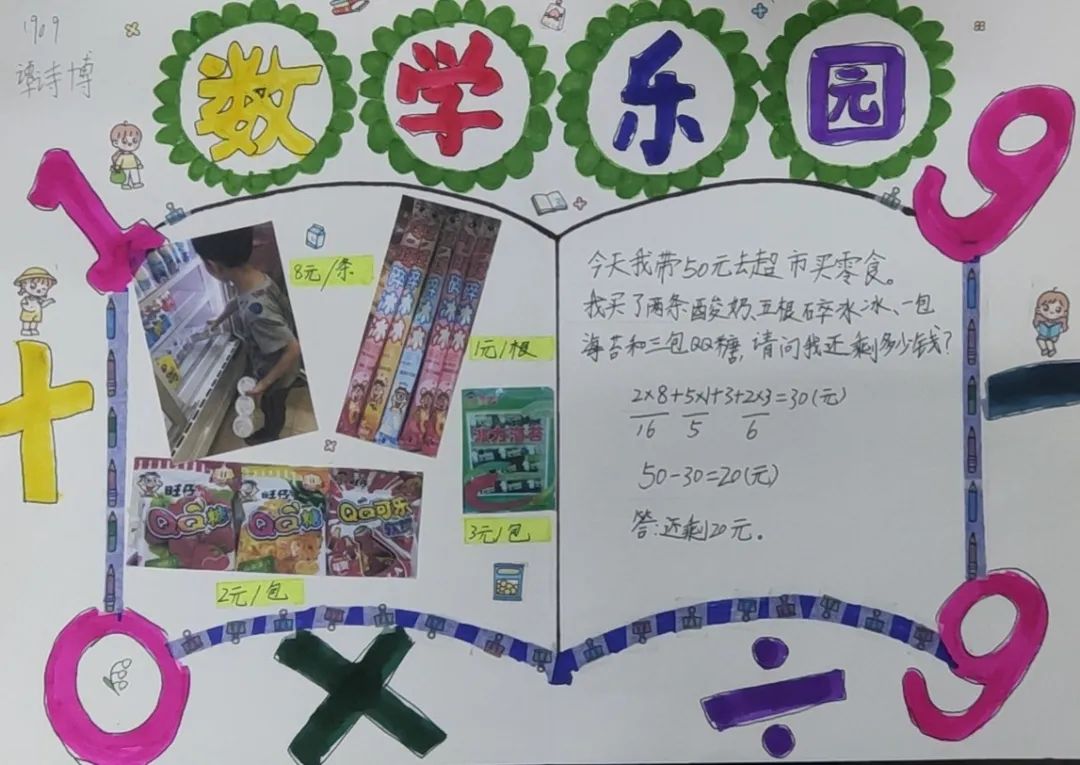 1909
谭诗博
数学乐园
1
9
8元/条
1元/根
3元/包
旺仔
QQ糖
旺仔
QQ糖
QQ可乐
2元/包
今天我带50元去超市买零食。
我买了两条酸奶、五根碎冰冰、一包
海苔和三包QQ糖,请问我还剩多少钱?
2×8+5×1+3+2×3=30(元)
16 5 6
50-30=20(元)
答:还剩20元。
+
-
0
×
÷
9